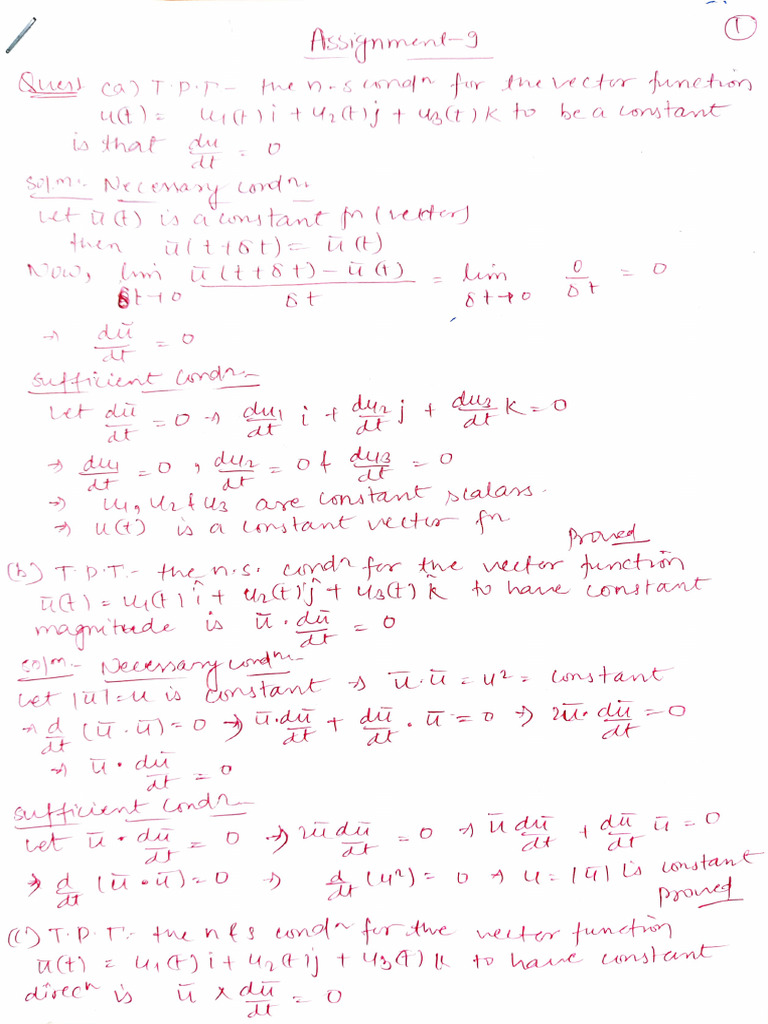 1
Assignment-9
Ques1 (a) T.P.T- the n.s condn for the vector function
u(t) = u1(t)i + u2(t)j + u3(t)k to be a constant
is that du/dt = 0
Soln:- Necessary condn.
Let ū(t) is a constant fn (vector)
then ū(t+δt) = ū(t)
Now, lim δt→0 (ū(t+δt) - ū(t))/δt = lim δt→0 0/δt = 0
⇒ dū/dt = 0
Sufficient condn-
Let dū/dt = 0 ⇒ du1/dt i + du2/dt j + du3/dt k = 0
⇒ du1/dt = 0, du2/dt = 0 & du3/dt = 0
⇒ u1, u2 & u3 are constant scalars.
⇒ u(t) is a constant vector fn
Proved
(b) T.P.T.- the n.s. condn for the vector function
ū(t) = u1(t)î + u2(t)ĵ + u3(t)k̂ to have constant
magnitude is ū · dū/dt = 0
Soln- Necessary condn-
Let |ū|=u is constant ⇒ ū·ū = u² = constant
⇒ d/dt (ū·ū)=0 ⇒ ū·dū/dt + dū/dt · ū = 0 ⇒ 2ū·dū/dt = 0
⇒ ū · dū/dt = 0
Sufficient condn-
Let ū · dū/dt = 0 ⇒ 2ū dū/dt = 0 ⇒ ū dū/dt + dū/dt ū = 0
⇒ d/dt (ū·ū)=0 ⇒ d/dt (u²) = 0 ⇒ u = |ū| is constant
Proved
(c) T.P.T.- the n & s condn for the vector function
ū(t) = u1(t)i + u2(t)j + u3(t)k to have constant
direcn is ū × dū/dt = 0